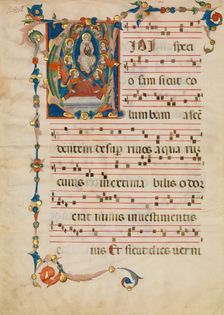 IDI speci
osam sicut co
lumbam ascen
dentem desuper riuos aqua rum
cuius inextima bilis o dor
erat nimis inuestimentis
eius Et sicut dies uerni